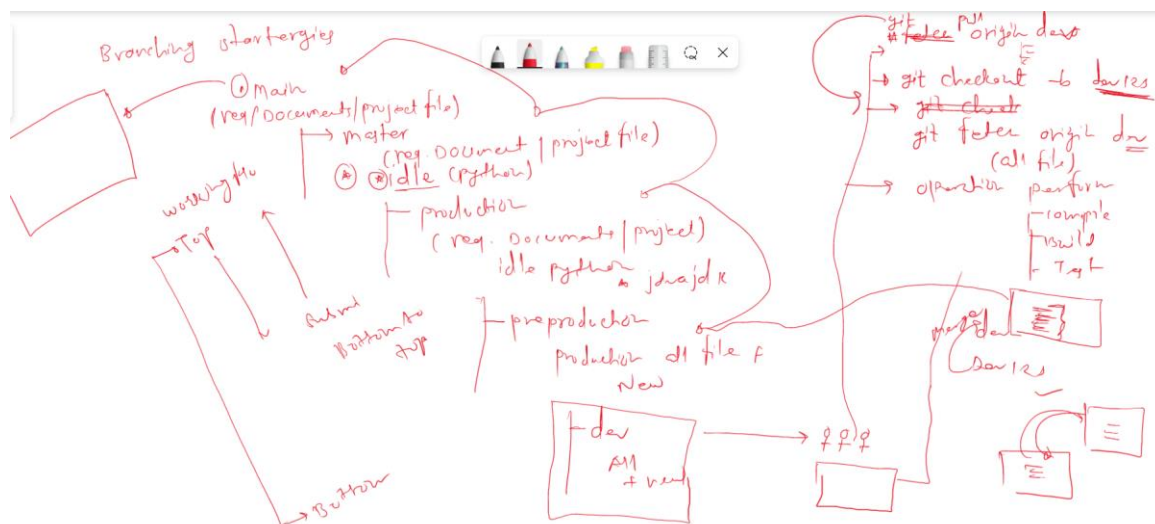 Branching startergies
main
(req/Documents/project file)
master
(req. Document/project file)
idle (python)
production
(req. Documents/project)
idle python
java jdk
preproduction
production all file +
New
dev
All
+ new
working flo
Top
Bottom to
top
Bottom
git pull origin dev
git checkout -b dev123
git check
git fetch origin dev
(all file)
operation perform
compile
Build
Test
merge
dev
dev123